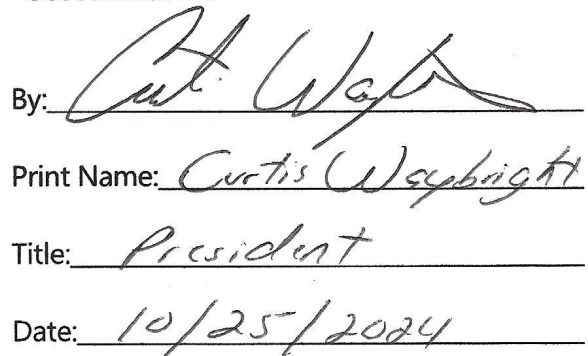 By: Curtis Waybright
Print Name: Curtis Waybright
Title: President
Date: 10/25/2024